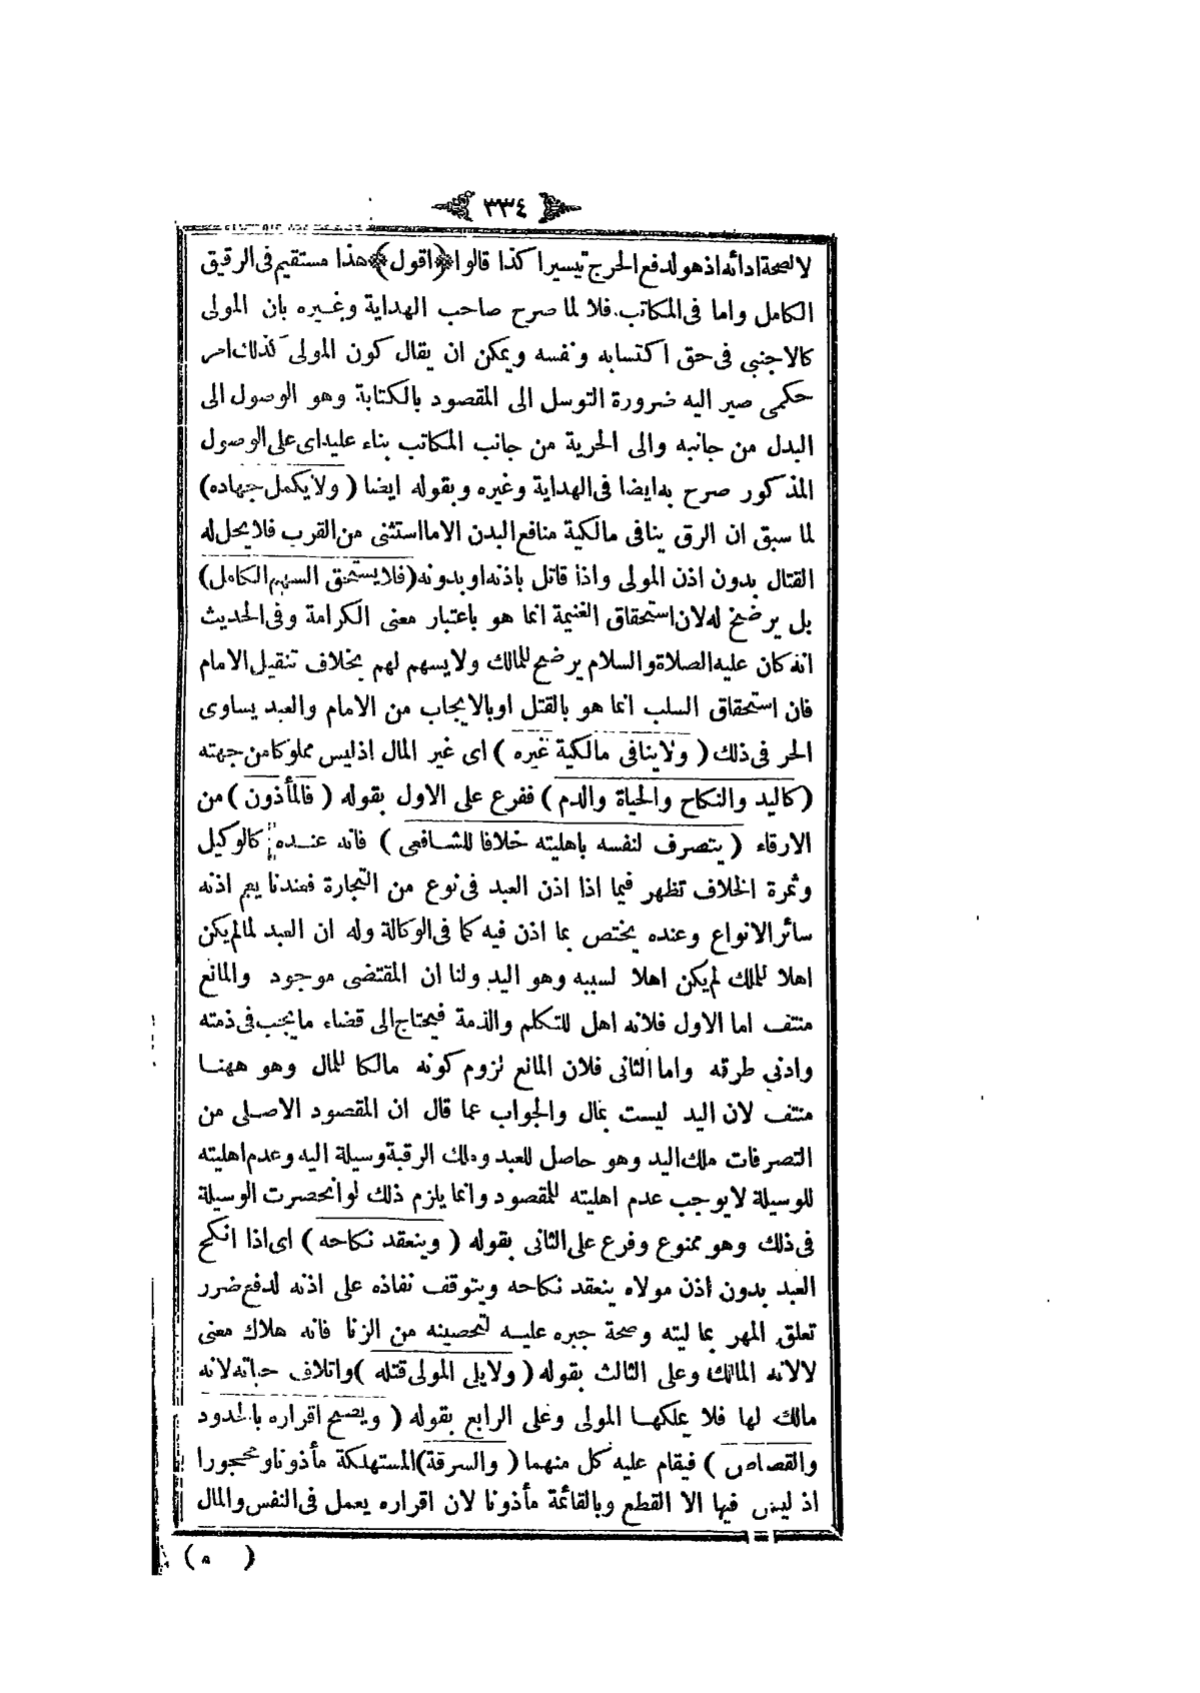 ٣٣٤
لالصحة ادائه اذ هو لدفع الحرج تيسيرا كذا قالوا ﴿اقول﴾ هذا مستقيم فى الرقيق
الكامل واما فى المكاتب فلا لما صرح صاحب الهداية وغيره بان المولى
كالاجنبى فى حق اكتسابه ونفسه ويمكن ان يقال كون المولى كذلك امر
حكمى صير اليه ضرورة التوسل الى المقصود بالكتابة وهو الوصول الى
البدل من جانبه والى الحرية من جانب المكاتب بناء عليه اى على الوصول
المذكور صرح به ايضا فى الهداية وغيره وبقوله ايضا ( ولا يكمل جهاده )
لما سبق ان الرق ينافى مالكية منافع البدن الا ما استثنى من القرب فلا يحل له
القتال بدون اذن المولى واذا قاتل باذنه او بدونه ( فلا يستحق السهم الكامل )
بل يرضخ له لان استحقاق الغنيمة انما هو باعتبار معنى الكرامة وفى الحديث
انه كان عليه الصلاة والسلام يرضخ للمالك ولا يسهم لهم بخلاف تنفيل الامام
فان استحقاق السلب انما هو بالقتل او بالايجاب من الامام والعبد يساوى
الحر فى ذلك ( ولا ينافى مالكية غيره ) اى غير المال اذ ليس مملوكا من جهته
( كاليد والنكاح والحياة والدم ) ففرع على الاول بقوله ( فالمأذون ) من
الارقاء ( يتصرف لنفسه باهليته خلافا للشافعى ) فانه عنده كالوكيل
وثمرة الخلاف تظهر فيما اذا اذن العبد فى نوع من التجارة فعندنا يعم اذنه
سائر الانواع وعنده يختص بما اذن فيه كما فى الوكالة وله ان العبد لما لم يكن
اهلا للملك لم يكن اهلا لسببه وهو اليد ولنا ان المقتضى موجود والمانع
منتف اما الاول فلانه اهل للتكلم والذمة فيحتاج الى قضاء ما يجب فى ذمته
وادنى طرقه واما الثانى فلان المانع لزوم كونه مالكا للمال وهو ههنا
منتف لان اليد ليست بمال والجواب عما قال ان المقصود الاصلى من
التصرفات ملك اليد وهو حاصل للعبد وملك الرقبة وسيلة اليه وعدم اهليته
للوسيلة لا يوجب عدم اهليته للمقصود وانما يلزم ذلك لو انحصرت الوسيلة
فى ذلك وهو ممنوع وفرع على الثانى بقوله ( وينعقد نكاحه ) اى اذا انكح
العبد بدون اذن مولاه ينعقد نكاحه ويتوقف نفاذه على اذنه لدفع ضرر
تعلق المهر بماليته وصحة جبره عليه لتحصينه من الزنا فانه هلاك معنى
لالانه المالك وعلى الثالث بقوله ( ولا يلى المولى قتله ) واتلاف حياته لانه
مالك لها فلا يملكها المولى وعلى الرابع بقوله ( ويصح اقراره بالحدود
والقصاص ) فيقام عليه كل منهما ( والسرقة ) المستهلكة مأذونا ومحجورا
اذ ليس فيها الا القطع وبالقائمة مأذونا لان اقراره يعمل فى النفس والمال
( ٥ )